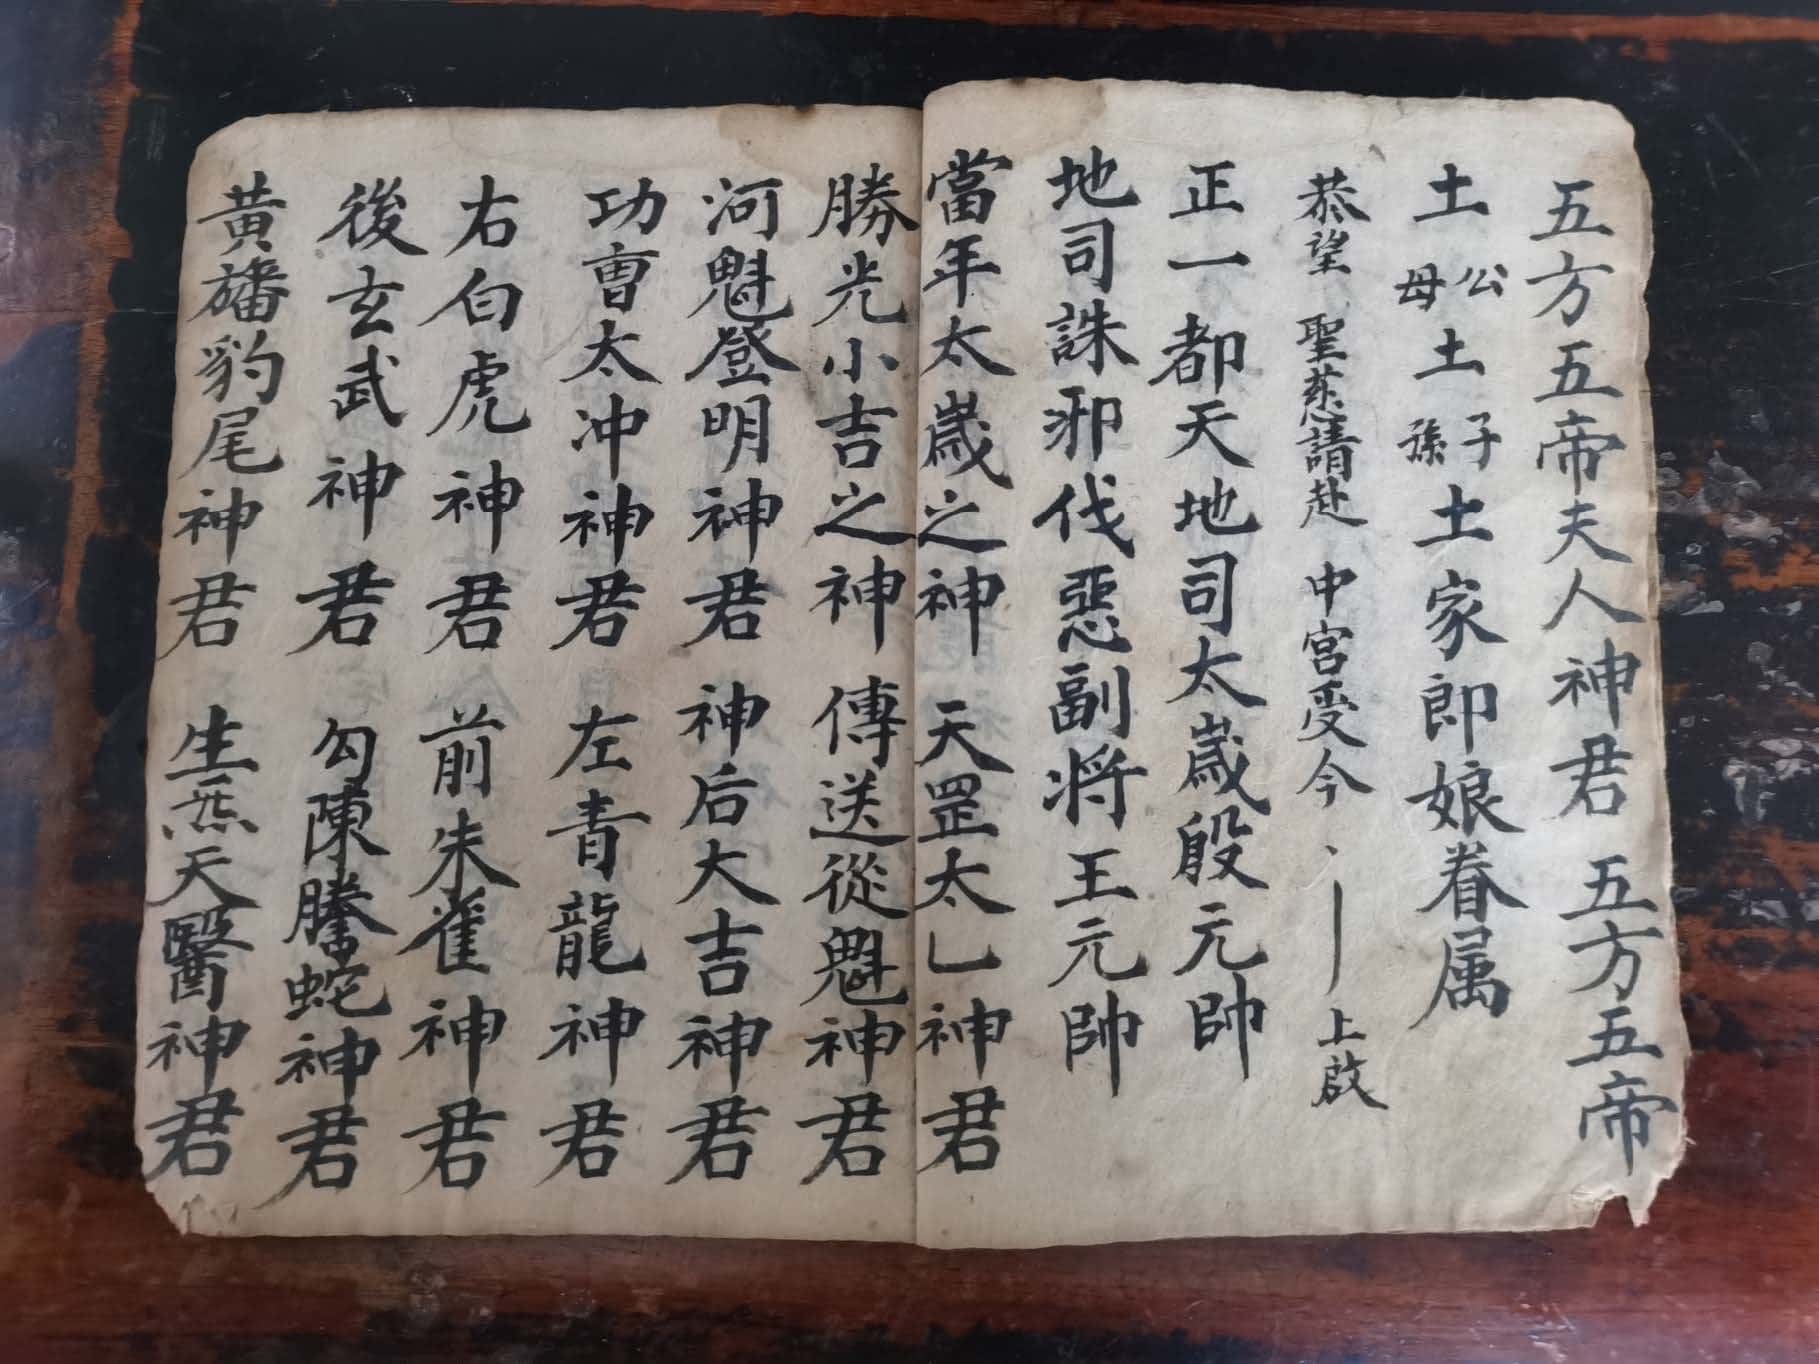 五方五帝夫人神君 五方五帝
土公母土子孫土家郎娘眷属
恭望 聖慈請赴 中宮受今 上啟
正一都天地司太歲殷元帥
地司誅邪伐惡副将王元帥
當年太歲之神 天罡太乚神君
勝光小吉之神 傳送從魁神君
河魁登明神君 神后大吉神君
功曹太冲神君 左青龍神君
右白虎神君 前朱雀神君
後玄武神君 勾陳騰蛇神君
黄旛豹尾神君 生炁天醫神君